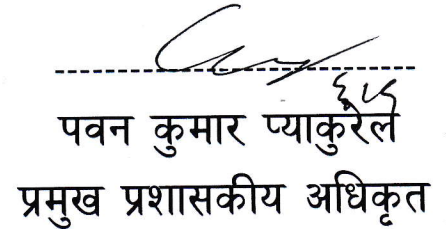 पवन कुमार प्याकुरेल
प्रमुख प्रशासकीय अधिकृत